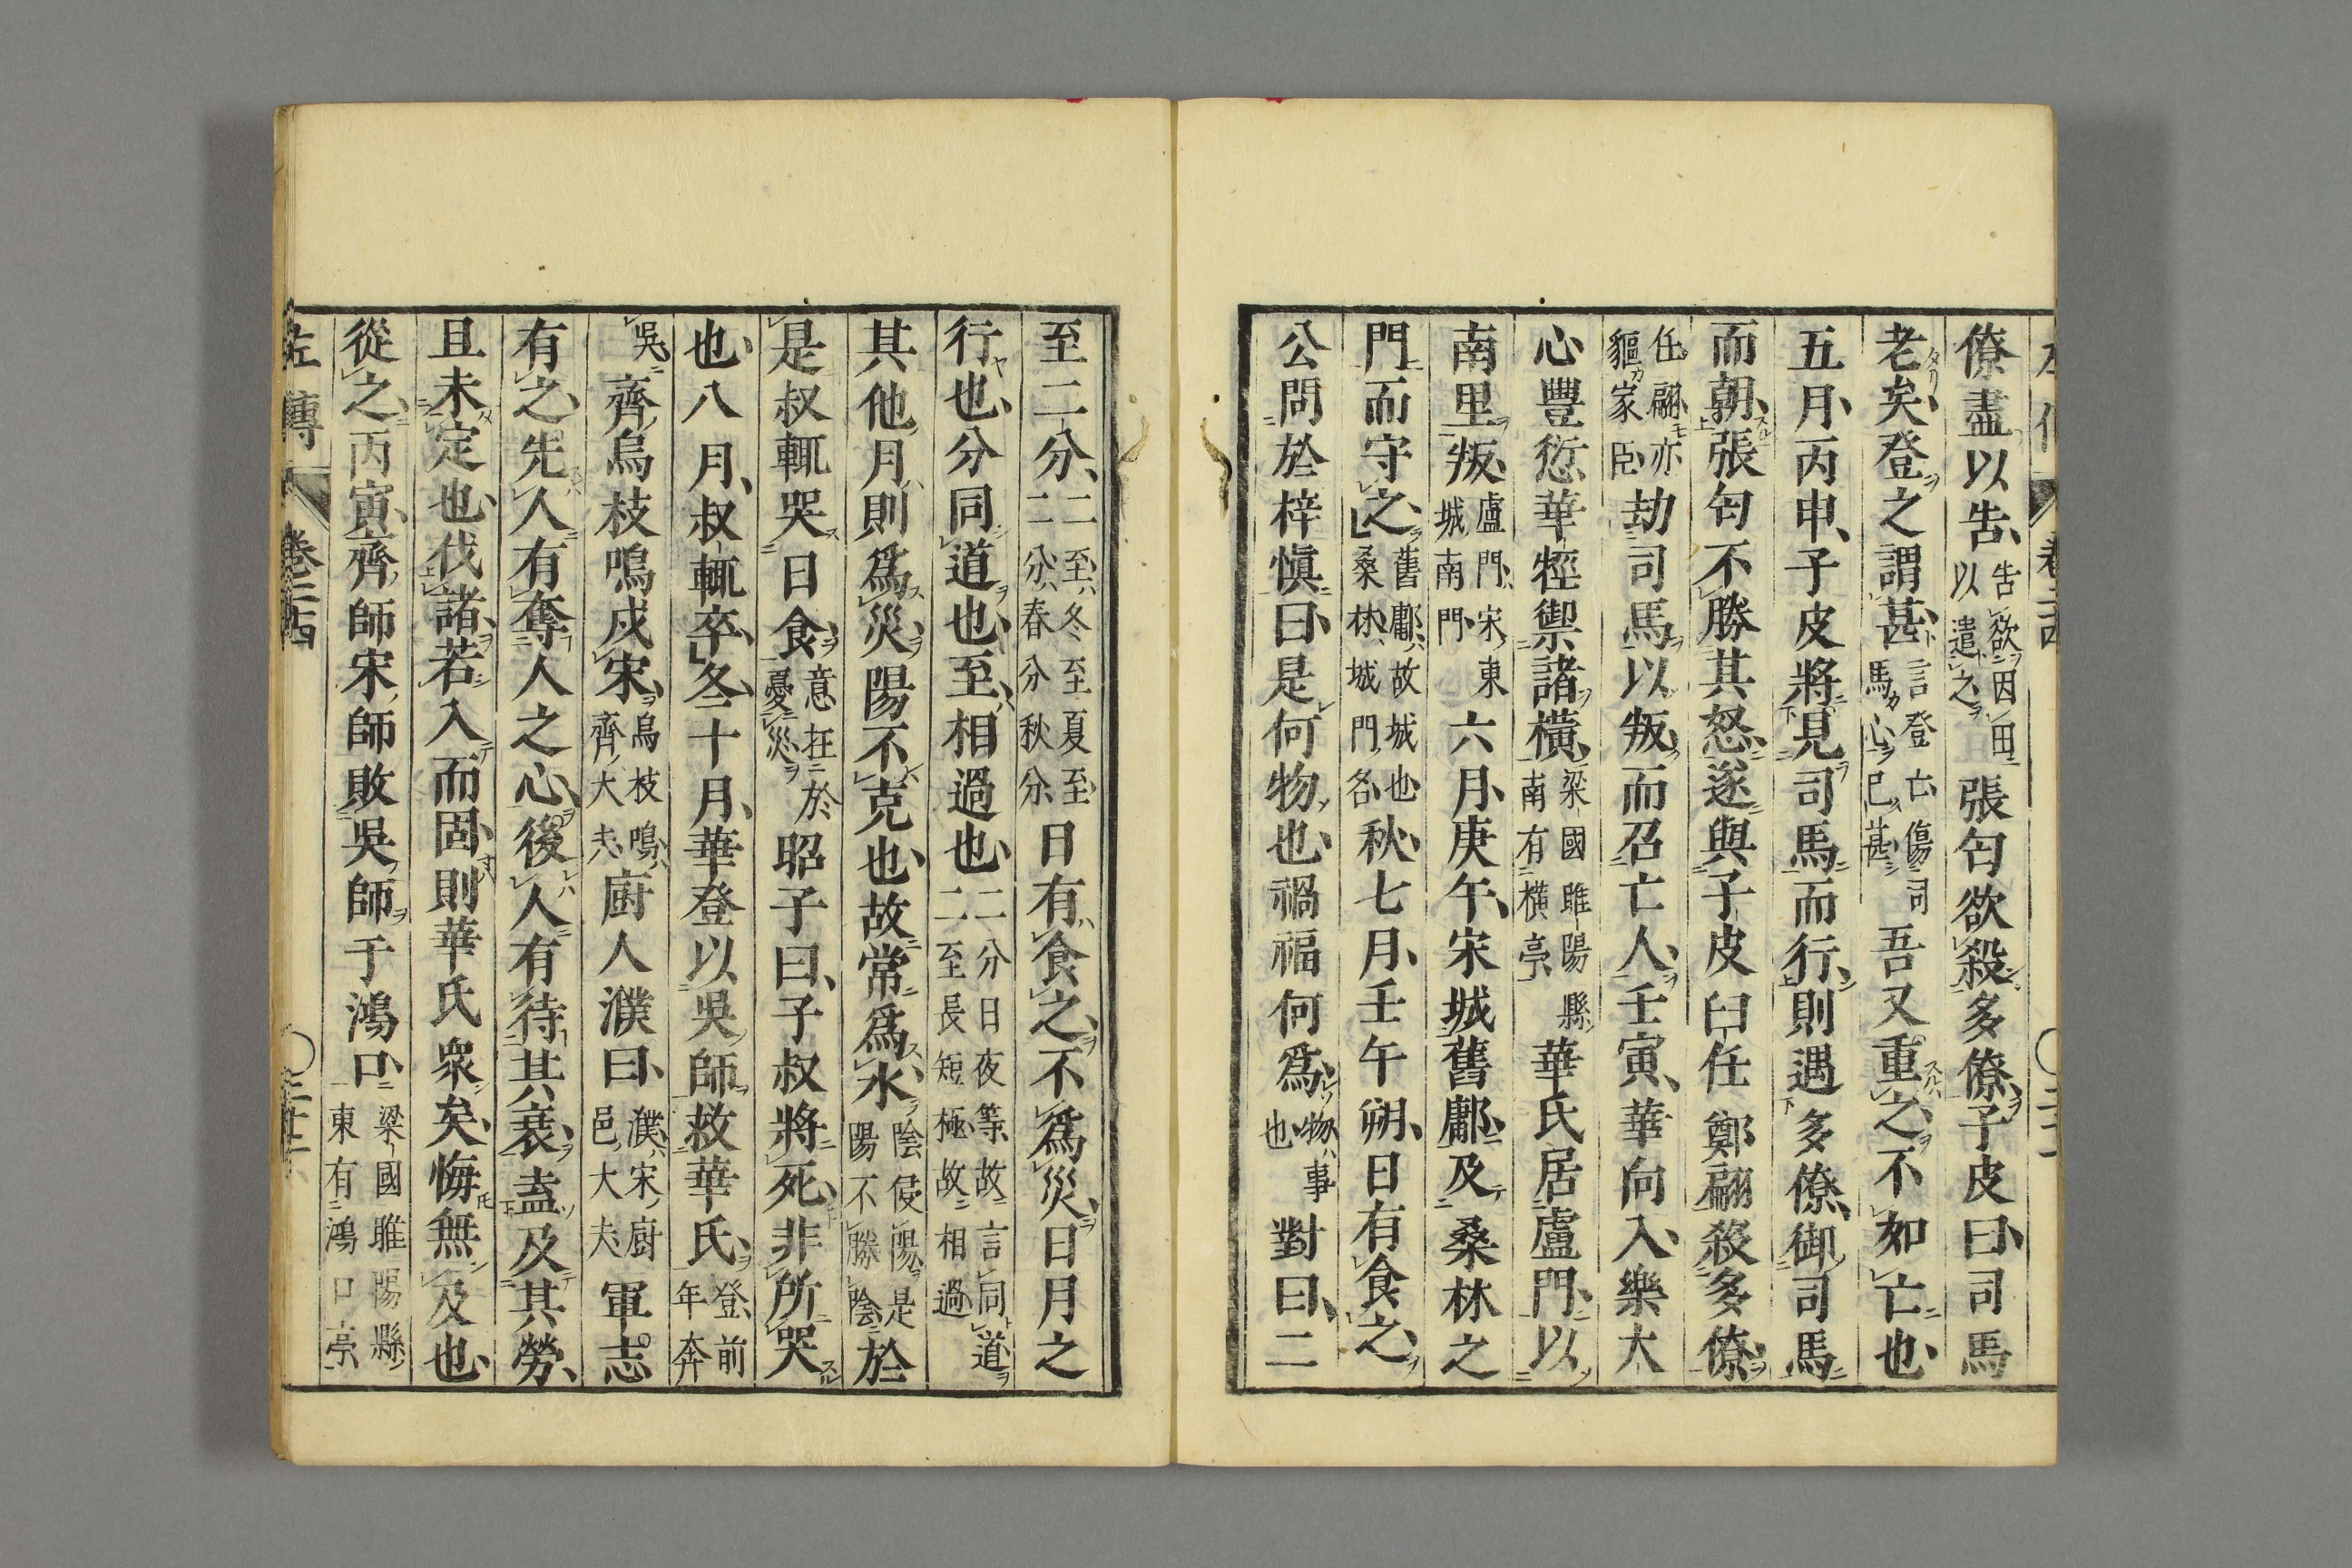 僚盡以告、告欲因田以遣之張匄欲殺多僚、子皮曰、司馬
老矣、登之謂甚、言登亡傷司馬心已甚吾又重之、不如亡也、
五月、丙申、子皮將見司馬而行、則遇多僚、御司馬
而朝、張匄不勝其怒、遂與子皮臼任鄭翩殺多僚、
任翩亦貙家臣劫司馬以叛、而召亡人、壬寅、華向入、樂大
心豐愆華牼禦諸橫、梁國睢陽縣南有橫亭華氏居盧門、以
南里叛、盧門宋東城南門六月、庚午、宋城舊鄘及桑林之
門而守之、舊鄘故城也桑林城門名秋、七月、壬午朔、日有食之、
公問於梓愼曰、是何物也、禍福何爲、物事也對曰、二
至二分、二至冬至夏至二分春分秋分日有食之、不爲災、日月之
行也、分同道也、至相過也、二分日夜等故言同道二至長短極故相過
其他月則爲災、陽不克也、故常爲水、陰侵陽是陽不勝陰於
是叔輒哭日食、意在於憂災昭子曰、子叔將死、非所哭
也、八月、叔輒卒、冬、十月、華登以吳師救華氏、登前年奔
吳齊烏枝鳴戍宋、烏枝鳴齊大夫廚人濮曰、濮宋廚邑大夫軍志
有之、先人有奪人之心、後人有待其衰、盍及其勞、
且未定也、伐諸、若入而固、則華氏衆矣、悔無及也、
從之、丙寅、齊師宋師敗吳師于鴻口、梁國睢陽縣東有鴻口亭
左傳 卷二十四